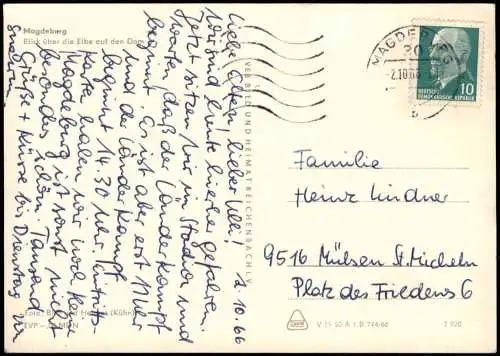 Magdeburg
Blick über die Elbe auf den Dom
2.10.66
Liebe Eltern, lieber Ulle!
Wir sind heute hierher gefahren.
Jetzt sitzen wir im Stadion und
warten, daß der Länderkampf
beginnt. Es ist aber erst 11 Uhr
und der Länderkampf
beginnt 14.30 Uhr. Eintritts-
karte haben wir noch keine.
Magdeburg ist sonst nicht
besonders schön. Tausend
Grüße + Küsse bis Dienstag
VEB BILD UND HEIMAT REICHENBACH I. V.
Foto: Bild und Heimat (Kühn)
EVP
MDN
MAGDEBURG
2.10.66
DEUTSCHE
DEMOKRATISCHE REPUBLIK
10
Familie
Heinz Lindner
9516 Mülsen St. Micheln
Platz des Friedens 6
V 11 50 A 1 B 744/64